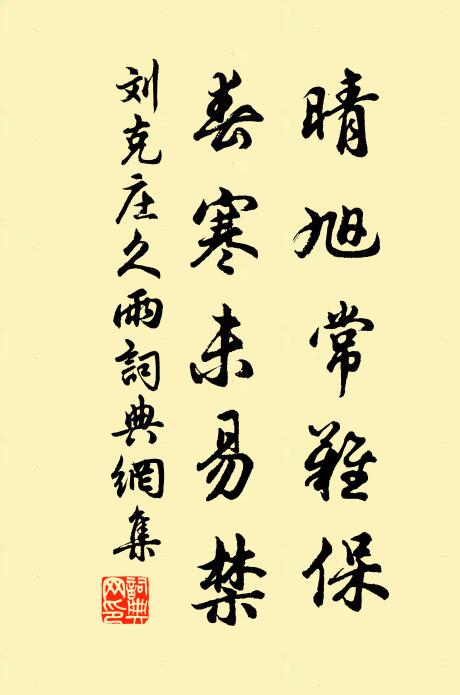 晴旭常難保
春寒未易禁
刘克庄久雨詞典網集
詞典网印